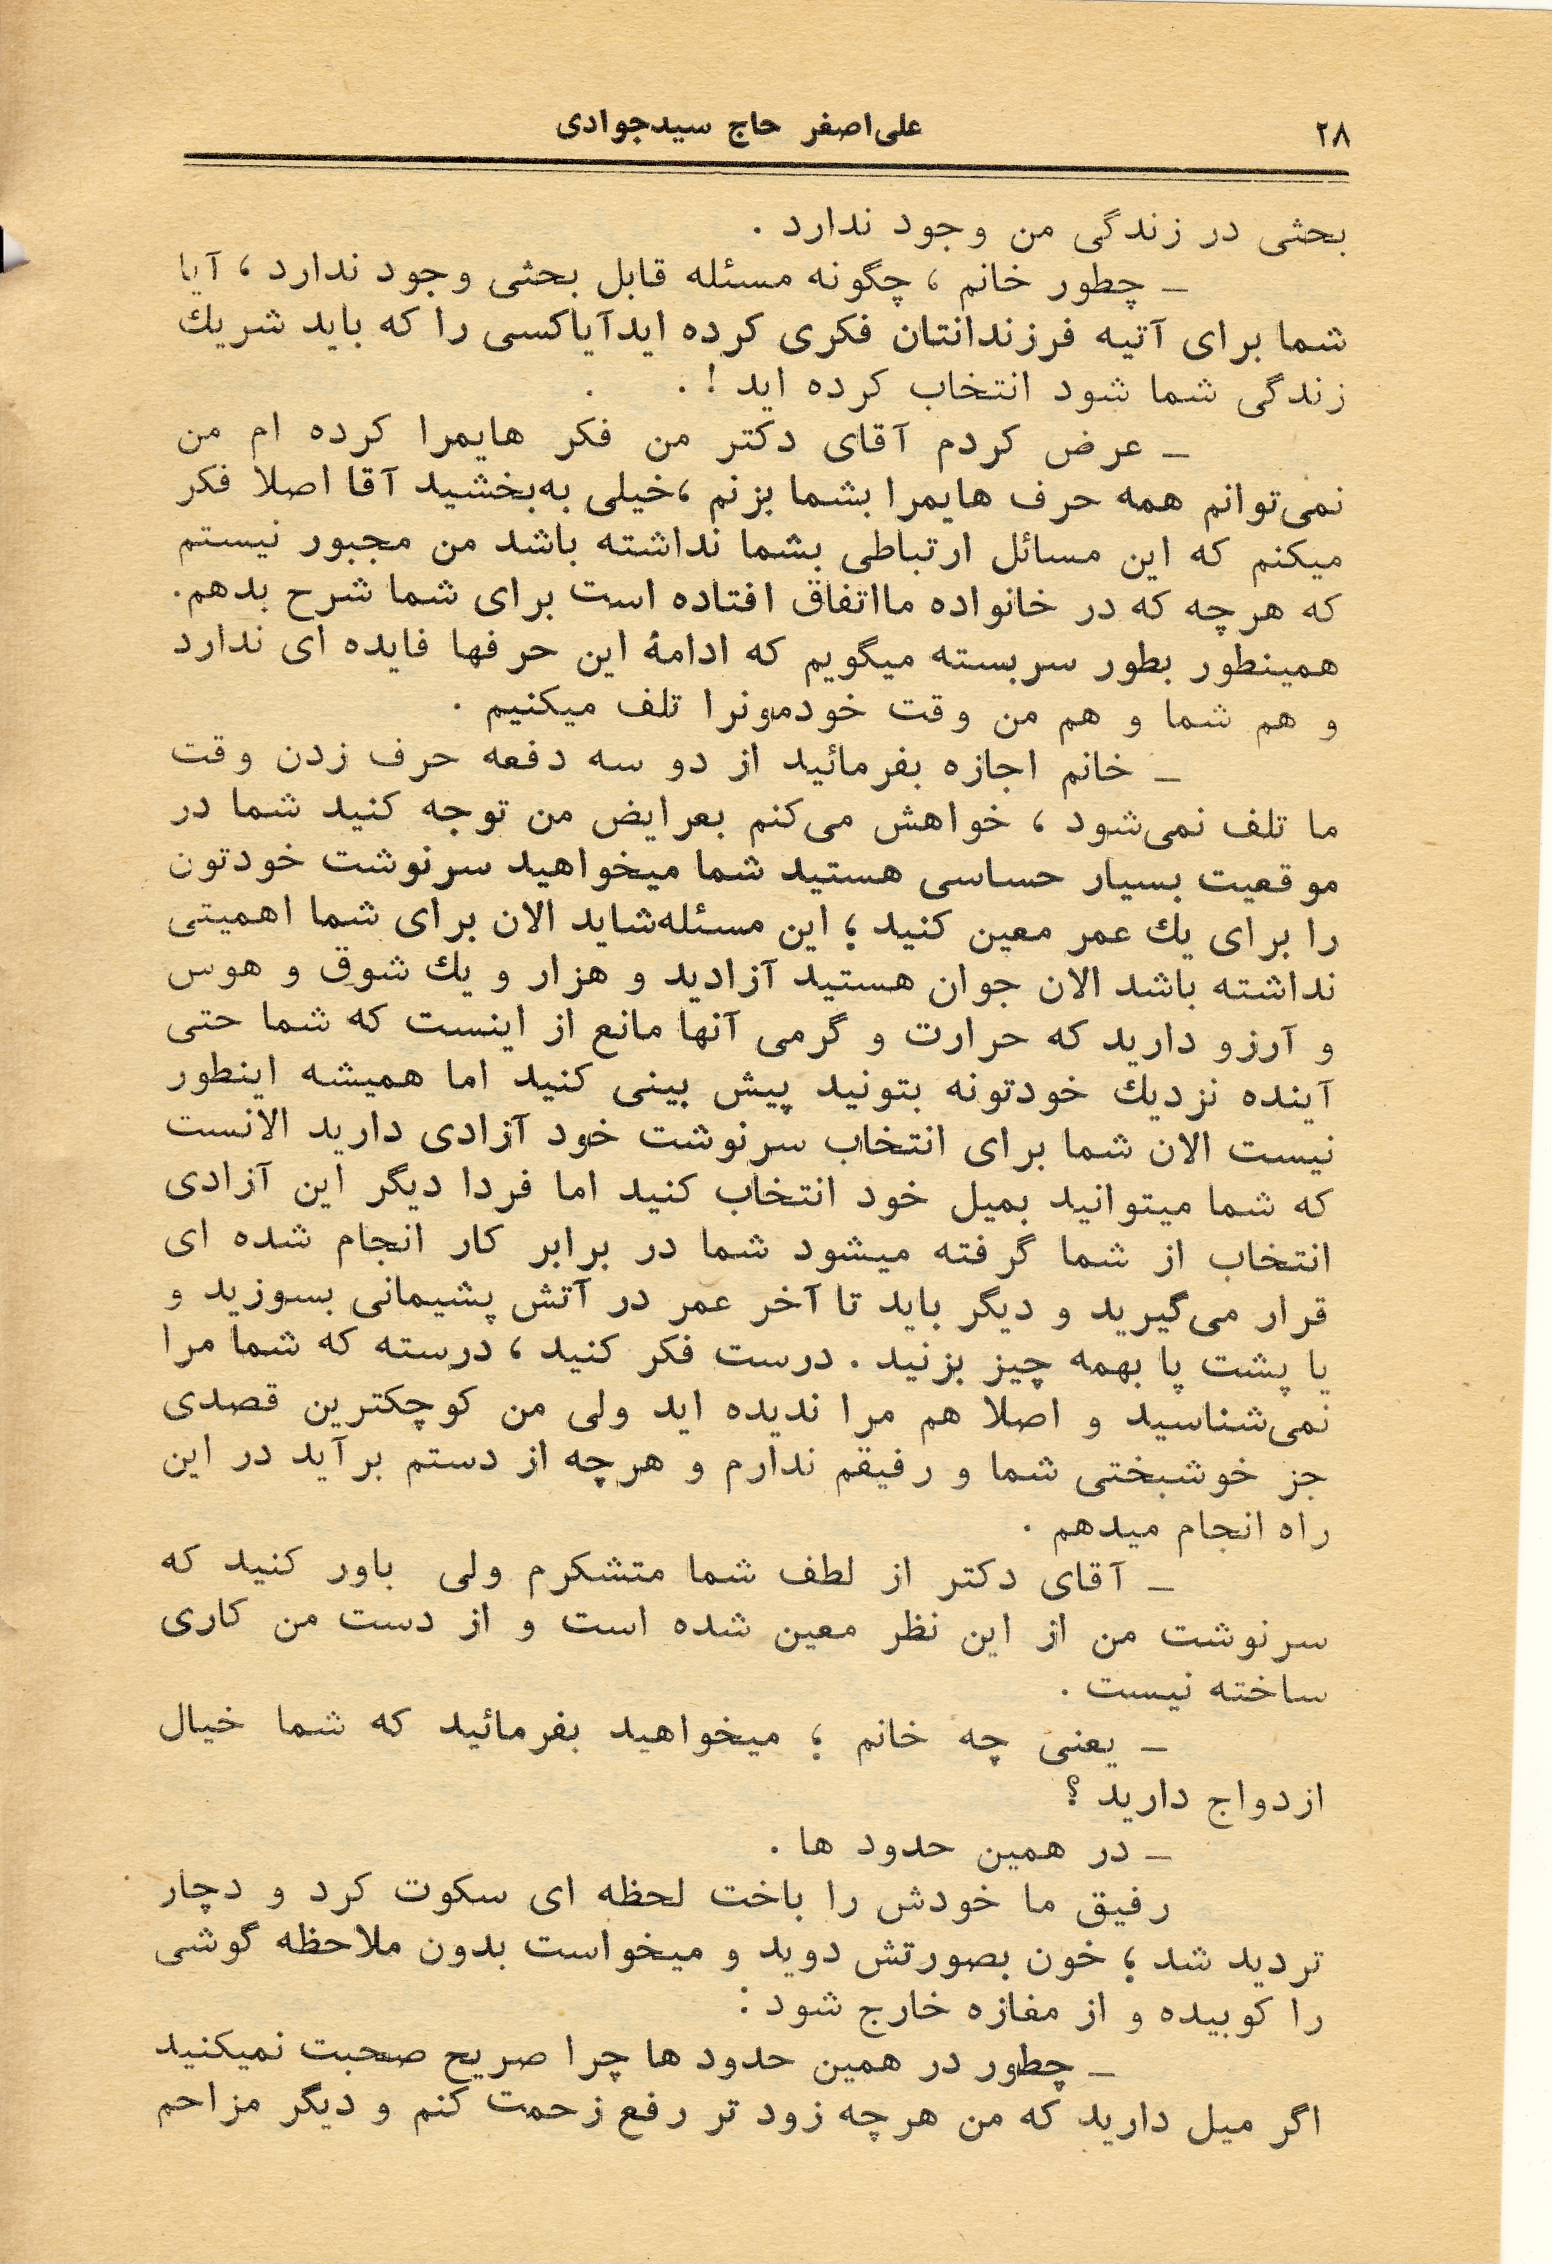 ۲۸
علی‌اصغر حاج سیدجوادی
بحثی در زندگی من وجود ندارد .
ـ چطور خانم ، چگونه مسئله قابل بحثی وجود ندارد ، آیا
شما برای آتیه فرزندانتان فکری کرده ایدآیاکسی را که باید شریك
زندگی شما شود انتخاب کرده اید ! .
ـ عرض کردم آقای دکتر من فکر هایمرا کرده ام من
نمی‌توانم همه حرف هایمرا بشما بزنم ،خیلی به‌بخشید آقا اصلا فکر
میکنم که این مسائل ارتباطی بشما نداشته باشد من مجبور نیستم
که هرچه که در خانواده مااتفاق افتاده است برای شما شرح بدهم.
همینطور بطور سربسته میگویم که ادامهٔ این حرفها فایده ای ندارد
و هم شما و هم من وقت خودمونرا تلف میکنیم .
ـ خانم اجازه بفرمائید از دو سه دفعه حرف زدن وقت
ما تلف نمی‌شود ، خواهش می‌کنم بعرایض من توجه کنید شما در
موقعیت بسیار حساسی هستید شما میخواهید سرنوشت خودتون
را برای یك عمر معین کنید ؛ این مسئله‌شاید الان برای شما اهمیتی
نداشته باشد الان جوان هستید آزادید و هزار و یك شوق و هوس
و آرزو دارید که حرارت و گرمی آنها مانع از اینست که شما حتی
آینده نزدیك خودتونه بتونید پیش بینی کنید اما همیشه اینطور
نیست الان شما برای انتخاب سرنوشت خود آزادی دارید الانست
که شما میتوانید بمیل خود انتخاب کنید اما فردا دیگر این آزادی
انتخاب از شما گرفته میشود شما در برابر کار انجام شده ای
قرار می‌گیرید و دیگر باید تا آخر عمر در آتش پشیمانی بسوزید و
یا پشت پا بهمه چیز بزنید . درست فکر کنید ، درسته که شما مرا
نمی‌شناسید و اصلا هم مرا ندیده اید ولی من کوچکترین قصدی
جز خوشبختی شما و رفیقم ندارم و هرچه از دستم برآید در این
راه انجام میدهم .
ـ آقای دکتر از لطف شما متشکرم ولی باور کنید که
سرنوشت من از این نظر معین شده است و از دست من کاری
ساخته نیست .
ـ یعنی چه خانم ؛ میخواهید بفرمائید که شما خیال
ازدواج دارید ؟
ـ در همین حدود ها .
رفیق ما خودش را باخت لحظه ای سکوت کرد و دچار
تردید شد ؛ خون بصورتش دوید و میخواست بدون ملاحظه گوشی
را کوبیده و از مغازه خارج شود :
ـ چطور در همین حدود ها چرا صریح صحبت نمیکنید
اگر میل دارید که من هرچه زود تر رفع زحمت کنم و دیگر مزاحم